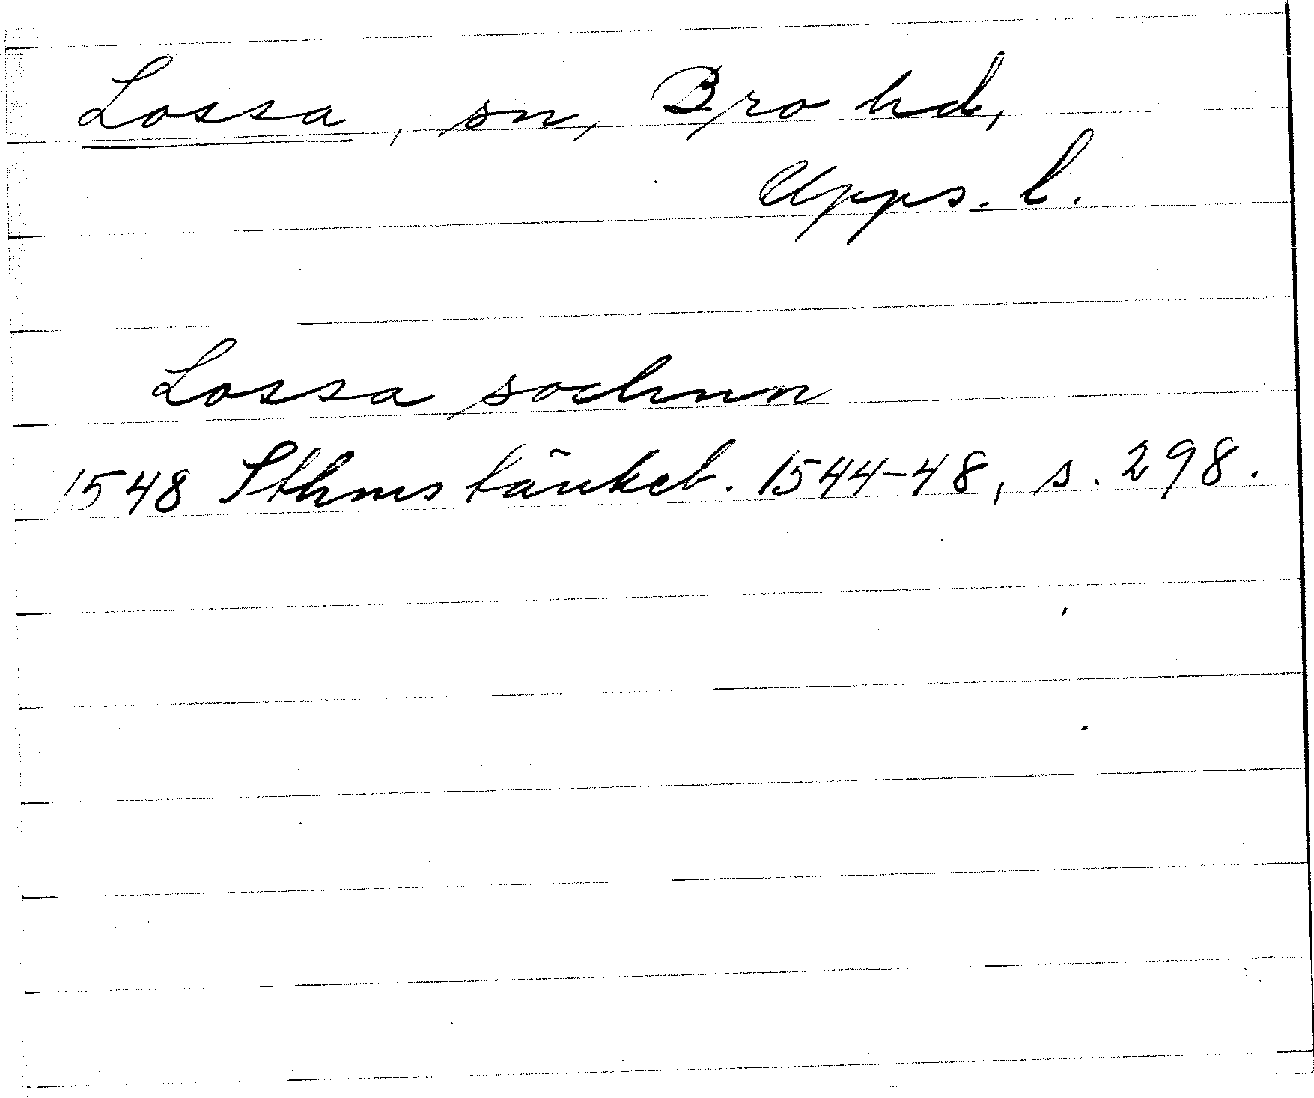 Lossa, sn, Bro hd,
Upps. l.
Lossa sochnn
1548 Sthms tänkeb. 1544-48, s. 298.